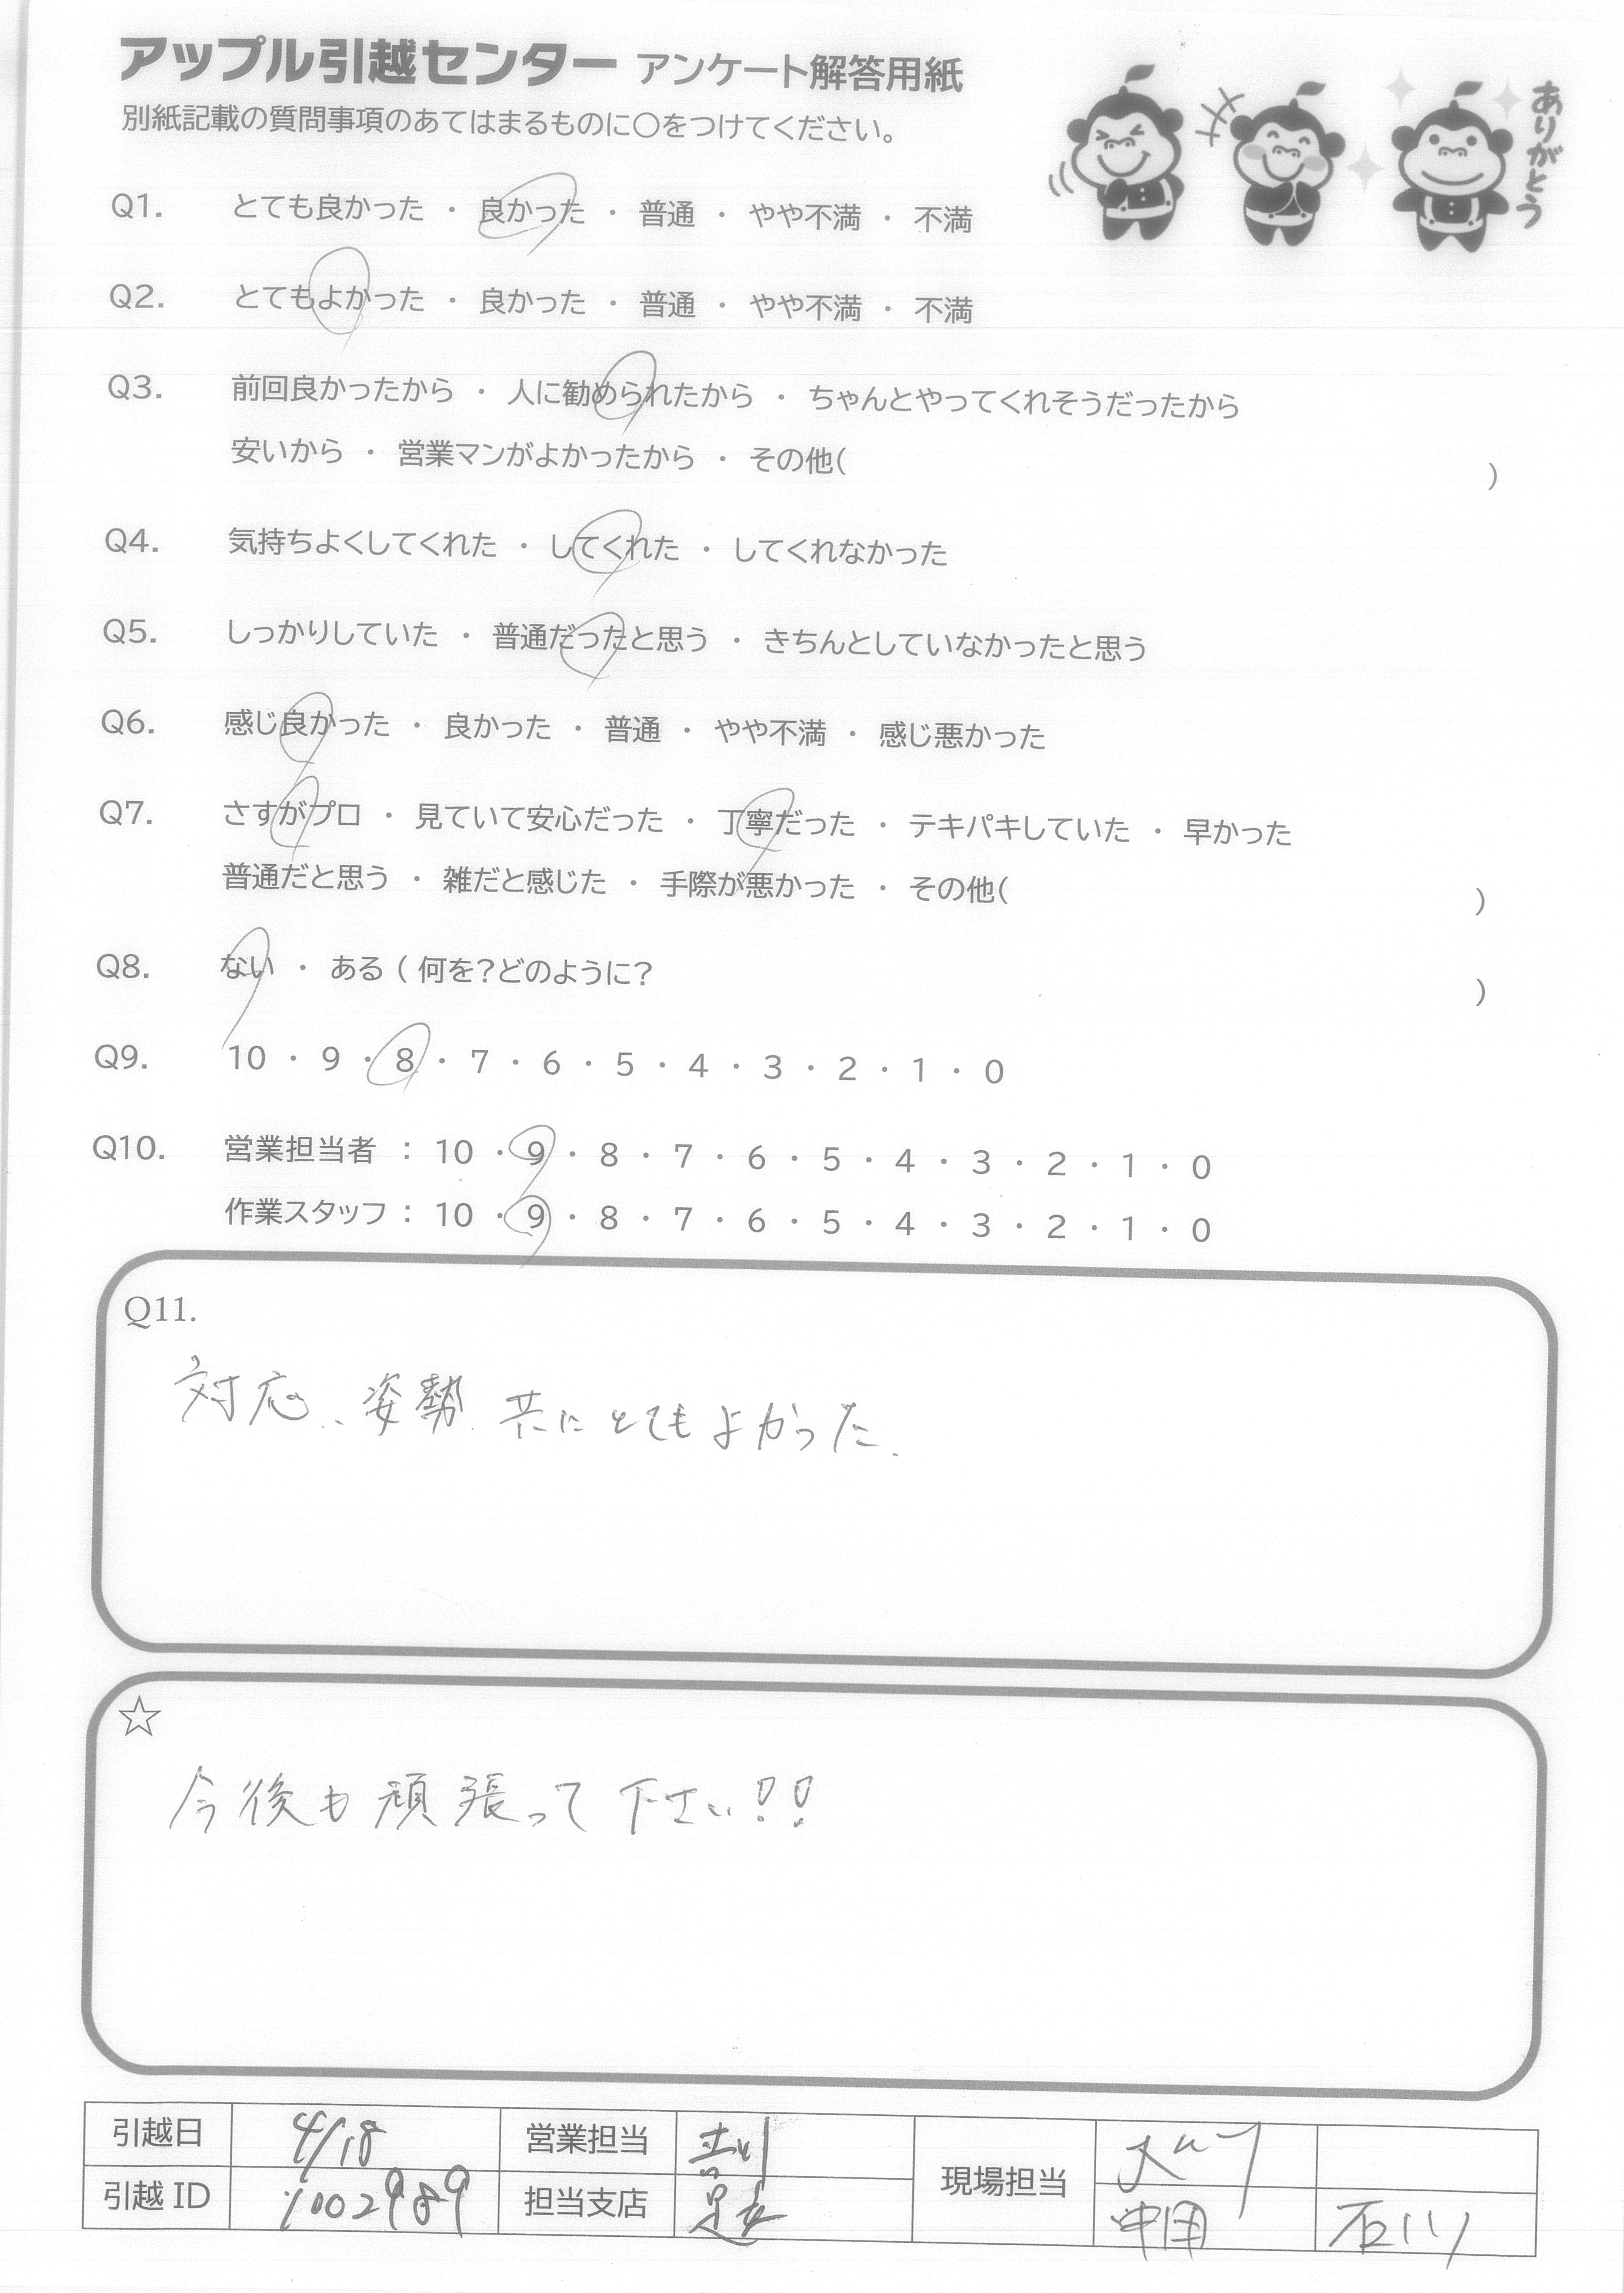 アップル引越センター アンケート解答用紙
別紙記載の質問事項のあてはまるものに○をつけてください。
ありがとう
Q1. とても良かった ・ 良かった ・ 普通 ・ やや不満 ・ 不満
Q2. とてもよかった ・ 良かった ・ 普通 ・ やや不満 ・ 不満
Q3. 前回良かったから ・ 人に勧められたから ・ ちゃんとやってくれそうだったから
安いから ・ 営業マンがよかったから ・ その他( )
Q4. 気持ちよくしてくれた ・ してくれた ・ してくれなかった
Q5. しっかりしていた ・ 普通だったと思う ・ きちんとしていなかったと思う
Q6. 感じ良かった ・ 良かった ・ 普通 ・ やや不満 ・ 感じ悪かった
Q7. さすがプロ ・ 見ていて安心だった ・ 丁寧だった ・ テキパキしていた ・ 早かった
普通だと思う ・ 雑だと感じた ・ 手際が悪かった ・ その他( )
Q8. ない ・ ある ( 何を?どのように? )
Q9. 10 ・ 9 ・ 8 ・ 7 ・ 6 ・ 5 ・ 4 ・ 3 ・ 2 ・ 1 ・ 0
Q10. 営業担当者 : 10 ・ 9 ・ 8 ・ 7 ・ 6 ・ 5 ・ 4 ・ 3 ・ 2 ・ 1 ・ 0
作業スタッフ : 10 ・ 9 ・ 8 ・ 7 ・ 6 ・ 5 ・ 4 ・ 3 ・ 2 ・ 1 ・ 0
Q11.
対応、姿勢 共にとてもよかった.
☆
今後も頑張って下さい!!
引越日 4/18 営業担当
現場担当
引越 ID 1002989 担当支店 足立
中田 石川